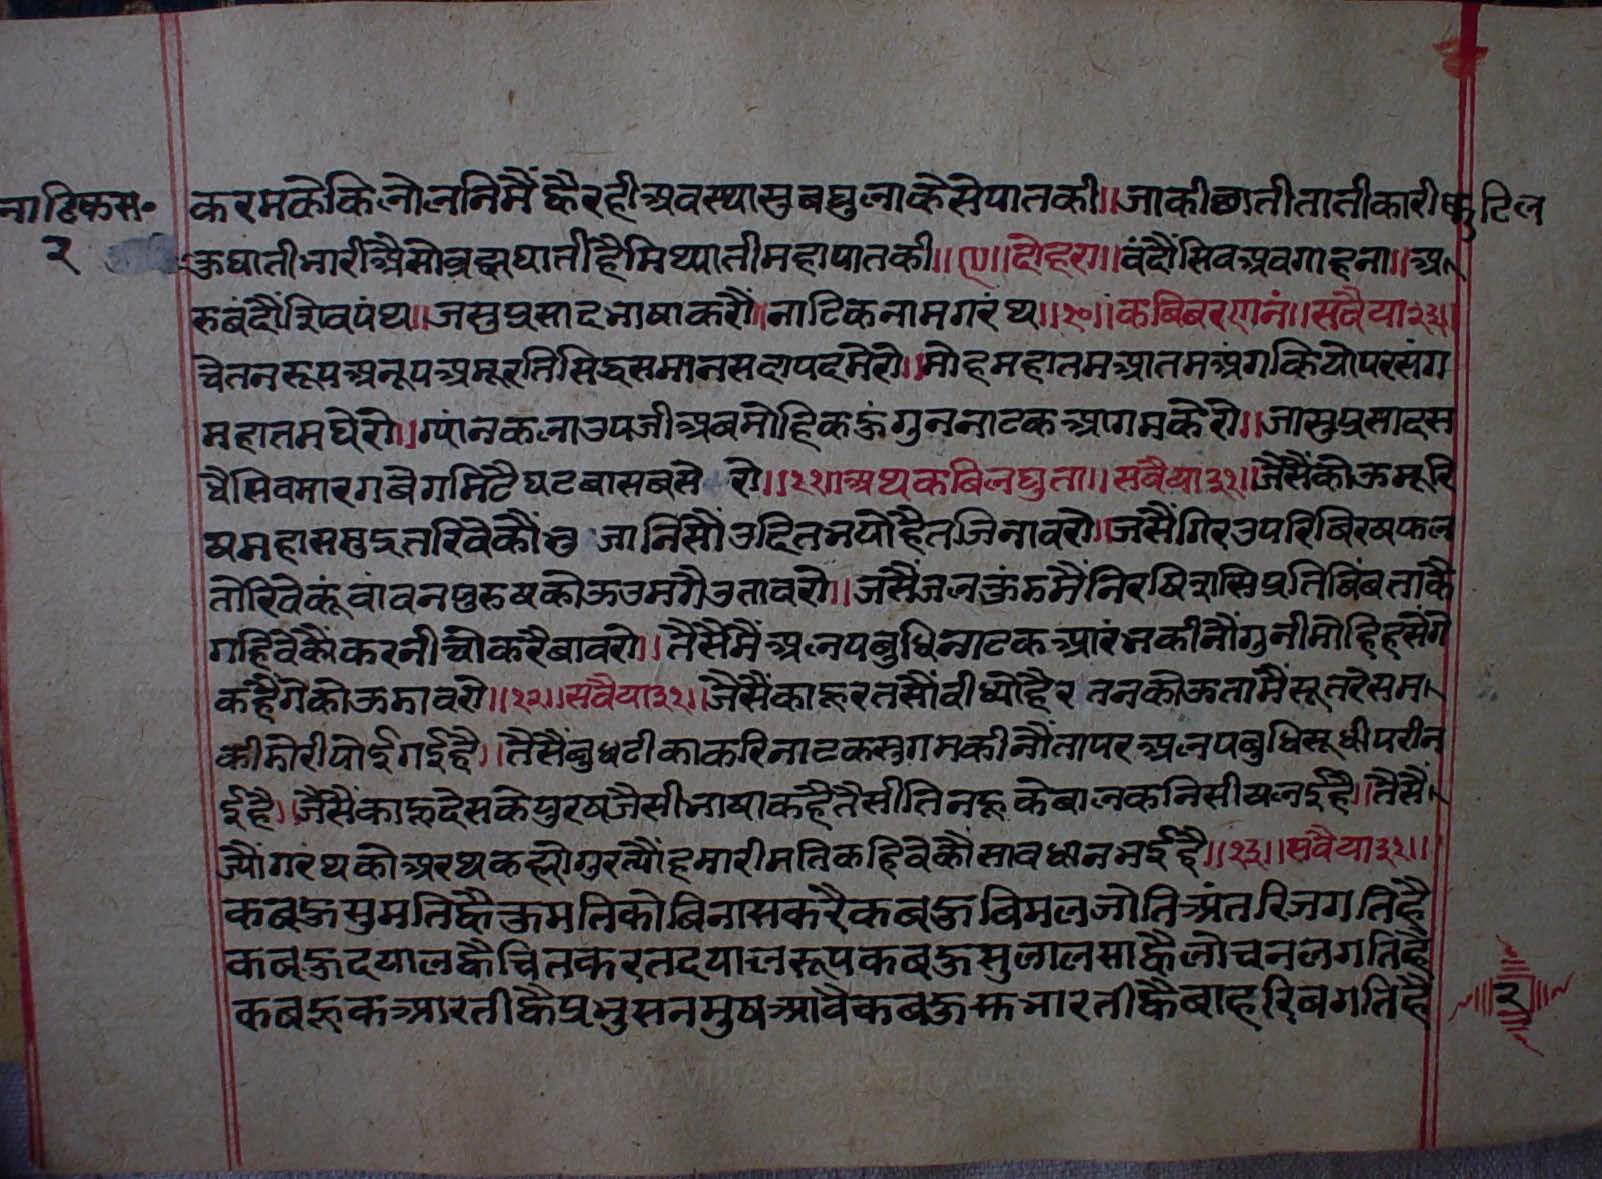 नाटिकस॰
२
करमकेकिलोलनिमैं ह्वैरहीअवस्थासुबघुलाकेसेपातकी॥जाकीछातीतातीकारीकुटिल
कुघातीभारीऐसोब्रह्मघातीहैमिथ्यातीमहापातकी॥९॥दोहरा॥वंदौंसिवअवगाहना॥अ
रुबंदौंशिवपंथ॥जसुप्रसादभाषाकरौं॥नाटिकनामगरंथ॥१०॥कबिबरणनं॥सवैया२३॥
चेतनरूपअनूपअमूरतिसिद्धसमानसदापदमेरो॥मोहमहातमआतमअंगकियोपरसंग
महातमघेरो॥ग्यांनकलाउपजीअबमोहिकहूंगुननाटकआगमकेरो॥जासुप्रसादस
धैसिवमारगबेगमिटैघटबासबसेरो॥११॥अथकबिलघुता॥सवैया३१॥जैसैंकोऊमूरि
षमहासमुद्रतरिवेकौंभुजानिसौंउदितभयोहैतजिनावरो॥जसैंगिरउपरिबिरषफल
तोरिवेकूंवांवनपुरुषकोऊउमगैउतावरो॥जसैंजलकुंडमैंनिरषिशसिप्रतिबिंबताकै
गहिवेकौंकरनीचोकरैबावरो॥तैंसैंमैंअलपबुधिनाटकआरंभकीनौंगुनीमोहिहसेंगे
कहैंगेकोऊडावरो॥१२॥सवैया३१॥जैसैंकाहूरतसौंवीध्योहैरतनकोऊतामैंसूतरेसम
कीडोरीपोईगईहै॥तैसैंबुधटीकाकरिनाटकसुगमकीनौंतापरअलपबुधिसूधीपरीन
ईहै॥जैसैंकाहूदेसकेपुरषजैसीभाषाकहैतैसीतिनहूकेबालकनिसीषलईहै॥तैसैं
ज्यौंगरंथकोअरथकह्योगुरत्यौंहमारीमतिकहिवेकौंसावधानभईहै॥१३॥सवैया३१॥
कबहूसुमतिह्वैकुमतिकोबिनासकरैकबहूबिमलजोतिअंतरिजगतिहै
कबहूदयालह्वैचितकरतदयालरूपकबहूसुलालसाह्वैलोचनलगतिहै
कबहूकआरतीह्वैप्रभुसनमुषआवैकबहूकभारतीह्वैबाहरिबगतिहै
२